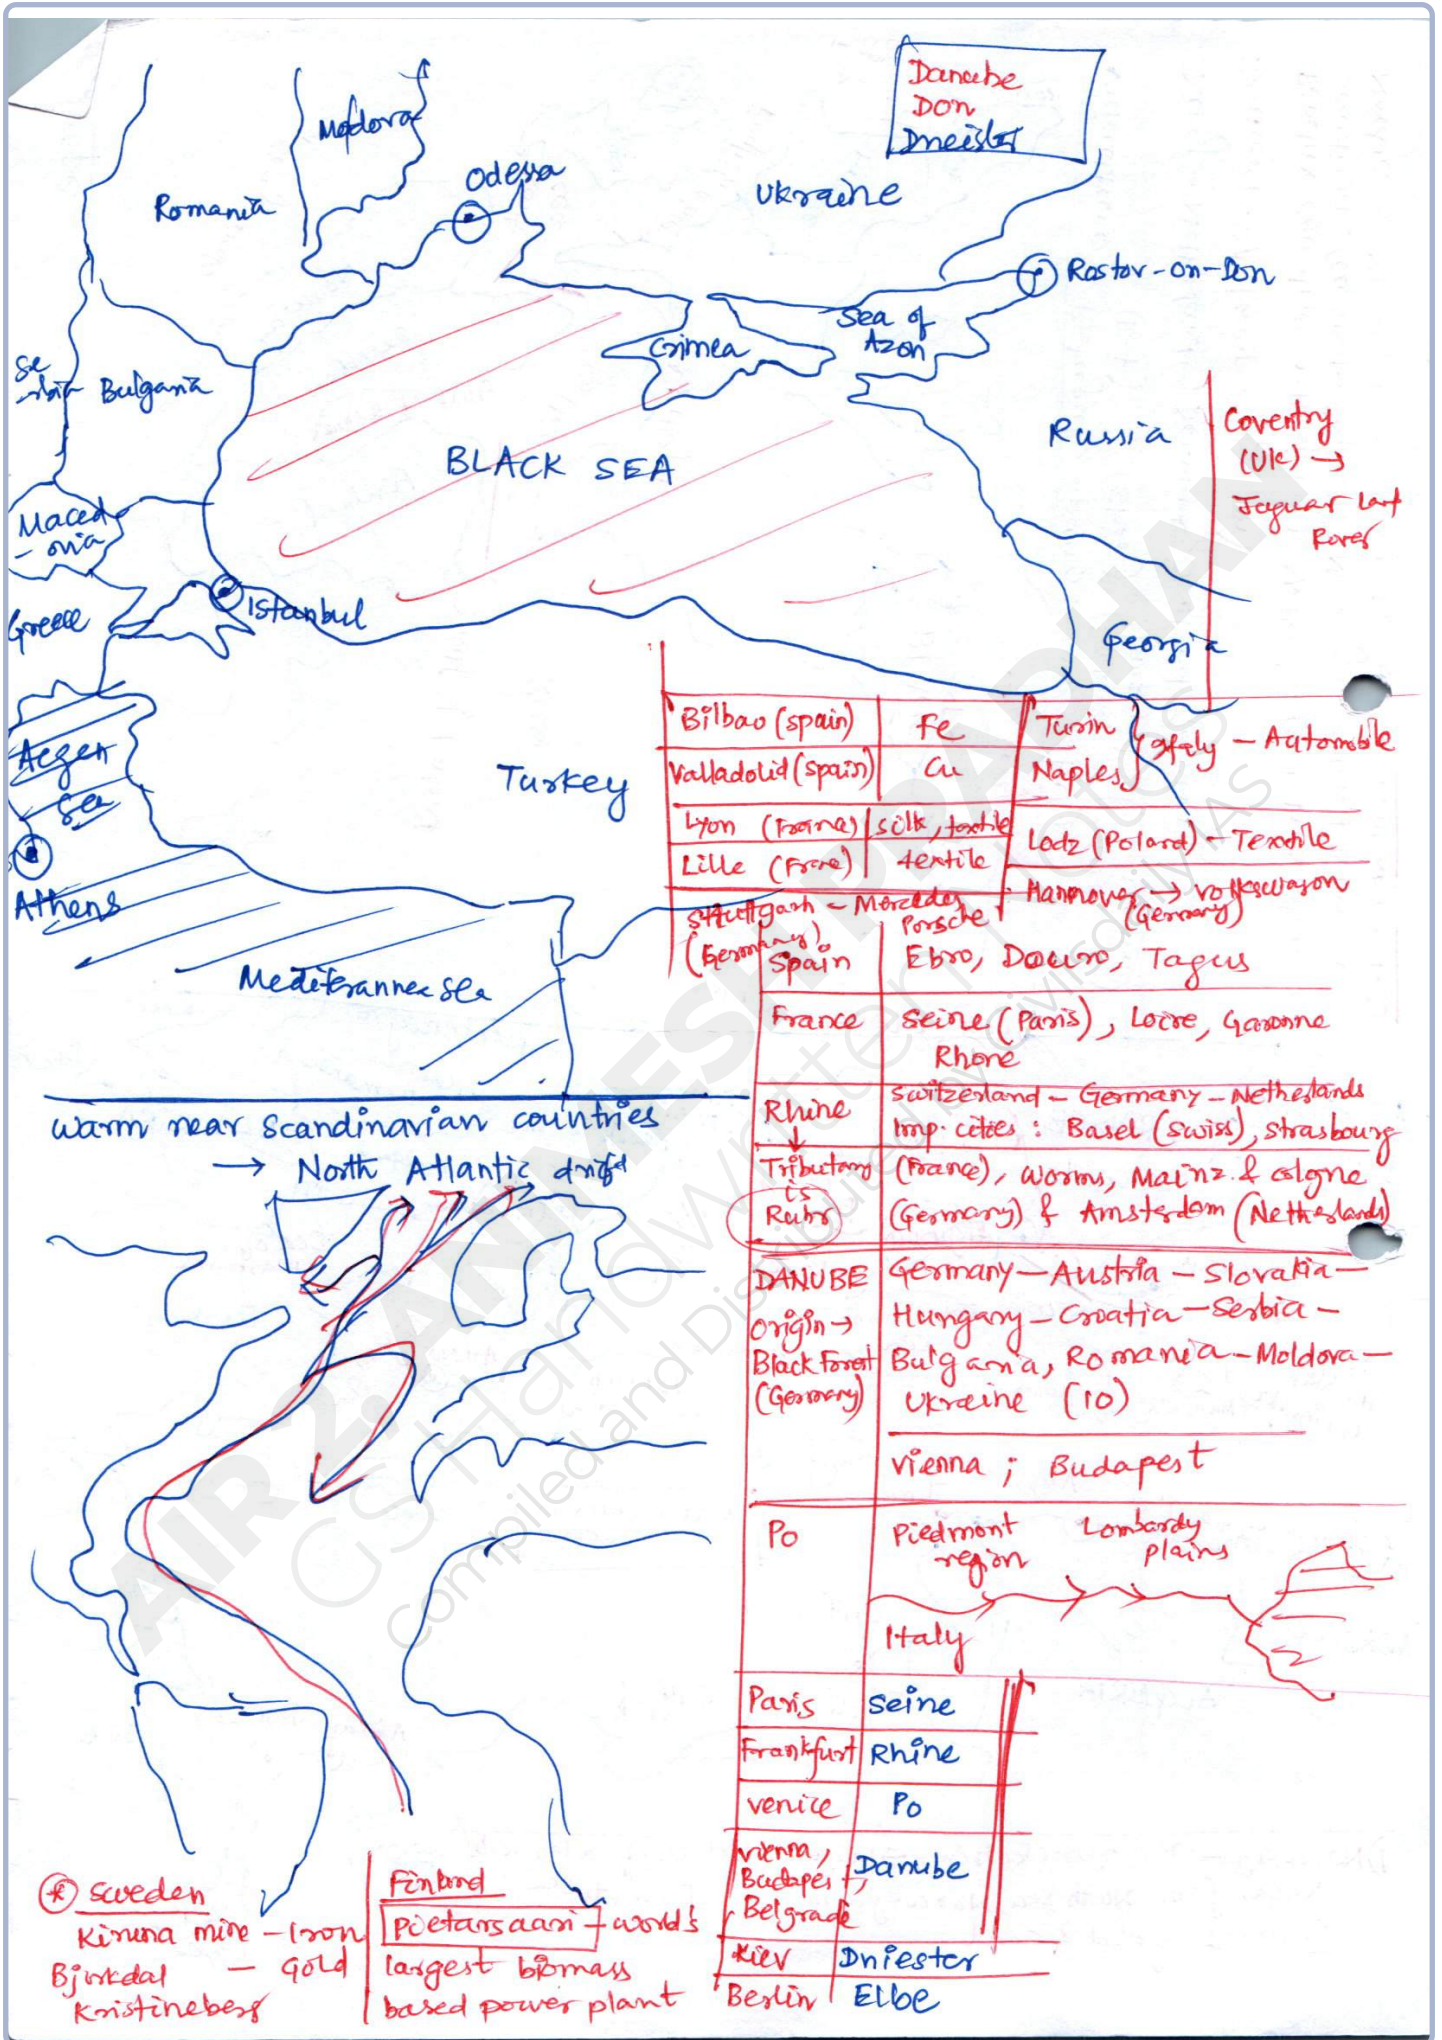 Danube
Don
Dneister
Modova
Odessa
Ukraine
Romania
Rostov-on-Don
Sea of
Azon
Crimea
Se
-rbia
Bulgaria
BLACK SEA
Russia
Coventry
(UK) →
Jaguar Land
Rover
Maced
- onia
Istanbul
Greece
Georgia
Turkey
Aegen
Sea
Athens
Mediterannea Sea
Bilbao (Spain) Fe
Valladolid (Spain) Cu
Lyon (France) silk, textile
Lille (France) textile
Turin
Naples
Italy - Automobile
Lodz (Poland) - Textile
Hannover → volkswason
(Germany)
Stuttgart - Mercedes
Porsche
(Germany)
Spain Ebro, Douro, Tagus
France Seine (Paris), Loire, Garonne
Rhone
Rhine
Tributary
is
Ruhr
Switzerland - Germany - Netherlands
Imp. cities : Basel (Swiss), Strasbourg
(France), Worms, Mainz & cologne
(Germany) & Amsterdom (Netherlands)
DANUBE
Origin →
Black Forest
(Germany)
Germany - Austria - Slovakia -
Hungary - Croatia - Serbia -
Bulgaria, Romania - Moldova -
Ukraine (10)
Vienna ; Budapest
Po
Piedmont
region
Lombardy
plains
Italy
Paris Seine
Frankfurt Rhine
Venice Po
Vienna,
Budapest,
Belgrade
Danube
Kiev Dniester
Berlin Elbe
Warm near Scandinavian countries
→ North Atlantic drift
* Sweden
Kiruna mine - Iron
Bjorkdal - Gold
Kristineberg
Finland
Pietarsaari - world's
largest biomass
based power plant
AIR 2, ANIMESH PRADHAN
GS Handwritten Notes
Compiled and Distributed by CivilsdailyIAS